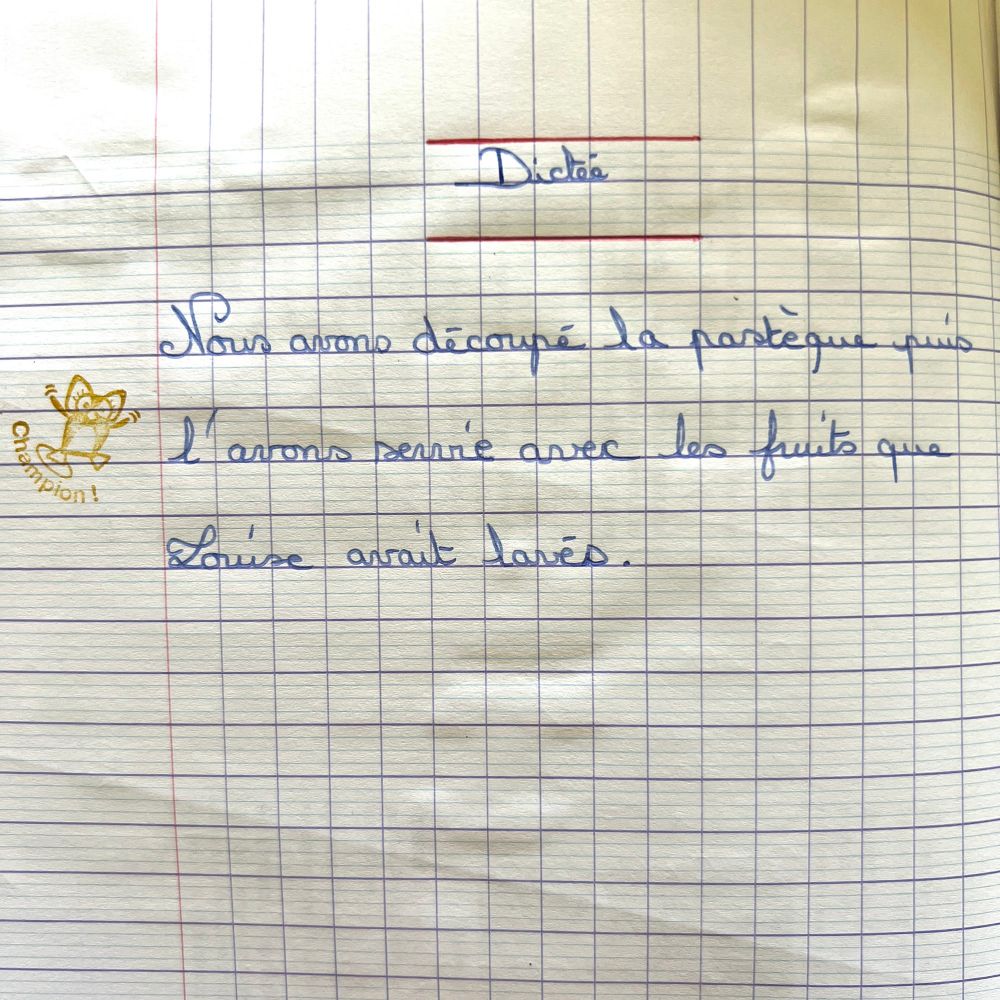 Dictée
Nous avons découpé la pastèque puis
l'avons servie avec les fruits que
Champion !
Louise avait lavés.